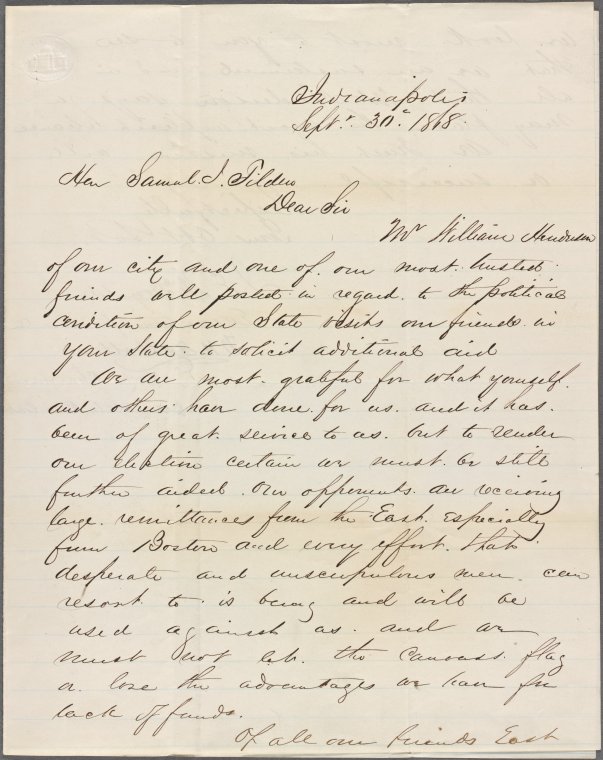 Indianapolis
Sept. 30. 1868.
Hon Samuel. J. Tilden
Dear Sir
Mr William Henderson
of our city and one of. our most. trusted.
friends will posted in regard. to the political
condition of our State visits our friends. in
your State. to solicit additional aid
We are most. grateful for what yourself.
and others have done. for us. and it has.
been of great. service to us. but to render
our election certain we must. be still
further aided. Our opponents. are receiving
large. remittances from the East. especially
from Boston and every effort. that.
desperate and unscrupulous men. can
resort to. is being and will be
used against us. and we
must not let. the canvass. flag
or. lose the advantages we have for
lack of funds.
Of all our friends East